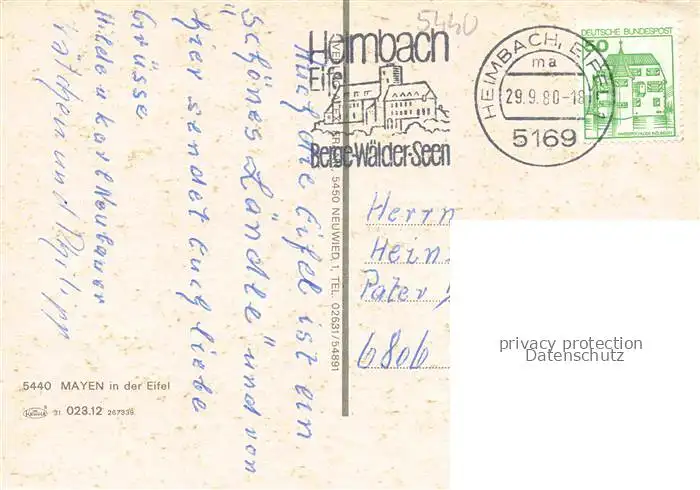 5440
Heimbach
Eifel
Berge·Wälder·Seen
HEIMBACH, EIFEL
ma
29.9.80-18
5169
DEUTSCHE BUNDESPOST
50
WASSERSCHLOSS INZLINGEN
Auch die Eifel ist ein
"schönes Ländle" und von
hier sendet Euch liebe
Grüsse
Hilde u. Karl Neubauer
Kätchen und Philipp
5450 NEUWIED 1, TEL. 02631/54891
Herrn
Hein
Pater
6806
privacy protection
Datenschutz
5440 MAYEN in der Eifel
31 023.12 267339